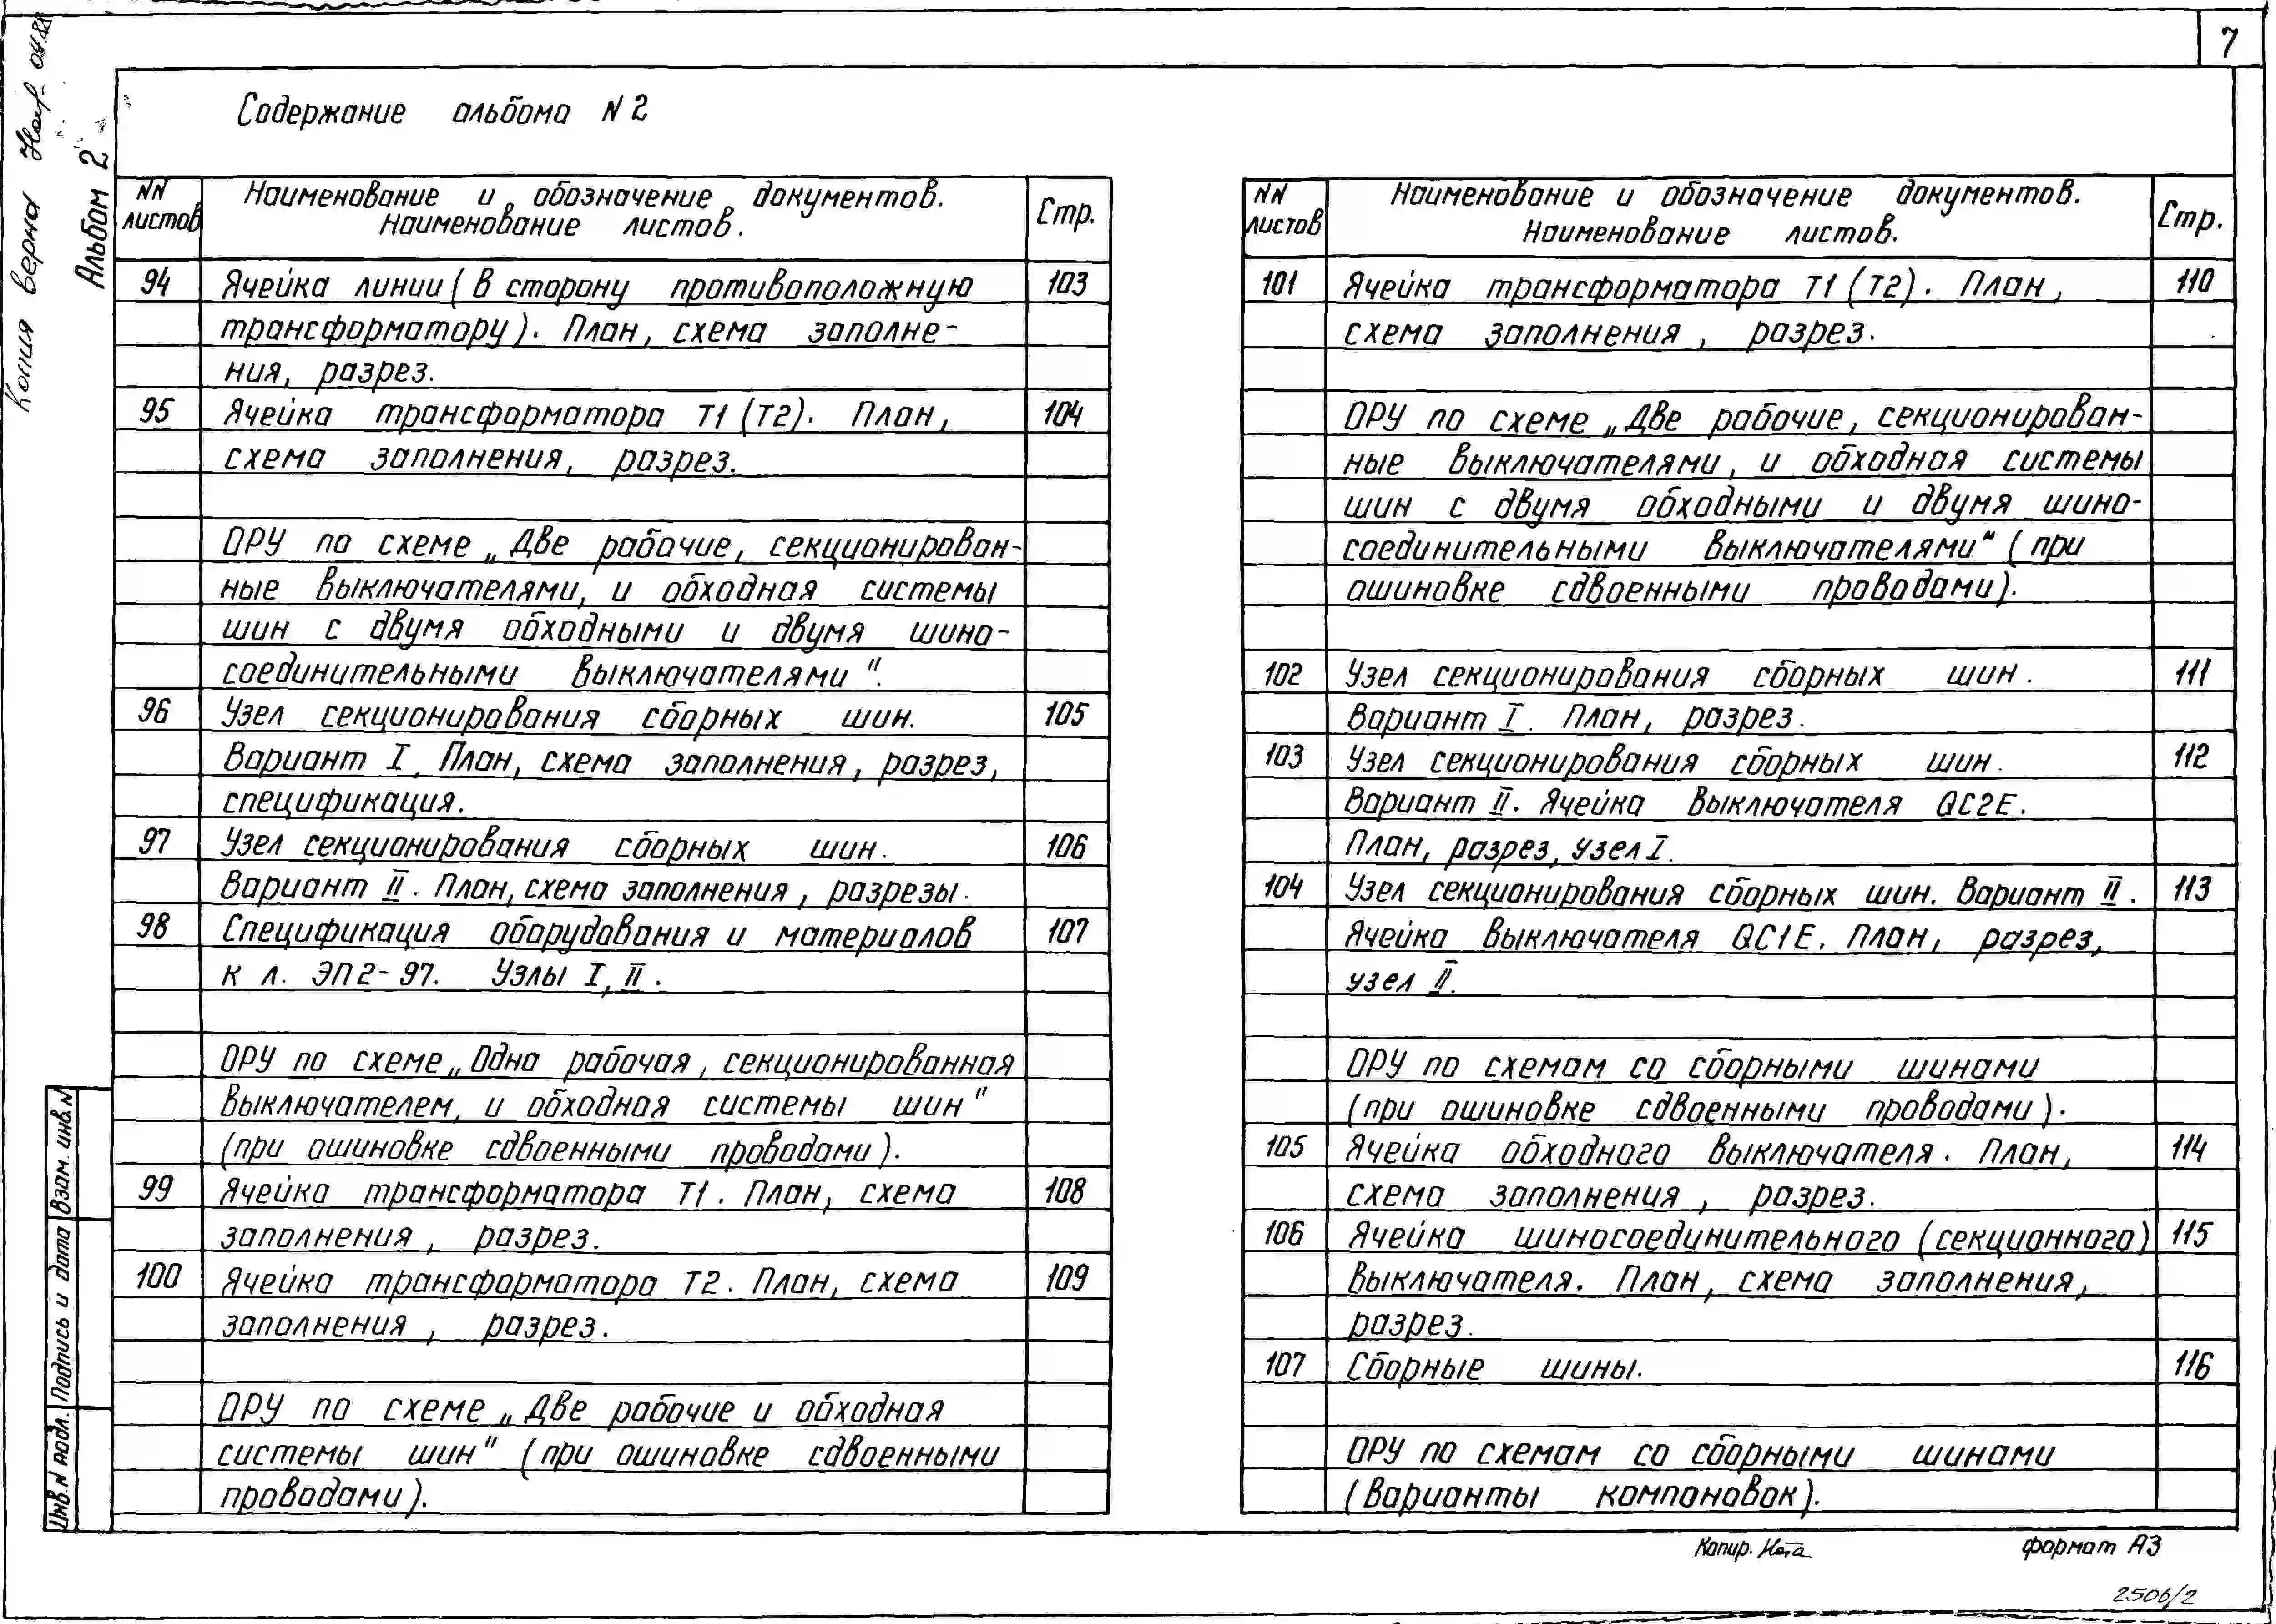 7
Содержание альбома N 2
Копия верна
Альбом 2
NN листов
Наименование и обозначение документов.
Наименование листов.
Стр.
94 Ячейка линии (в сторону противоположную 103
трансформатору). План, схема заполне-
ния, разрез.
95 Ячейка трансформатора Т1 (Т2). План, 104
схема заполнения, разрез.
ОРУ по схеме „Две рабочие, секционирован-
ные выключателями, и обходная системы
шин с двумя обходными и двумя шино-
соединительными выключателями".
96 Узел секционирования сборных шин. 105
Вариант I. План, схема заполнения, разрез,
спецификация.
97 Узел секционирования сборных шин. 106
Вариант II. План, схема заполнения, разрезы.
98 Спецификация оборудования и материалов 107
к л. ЭП2-97. Узлы I, II.
ОРУ по схеме „Одна рабочая, секционированная
выключателем, и обходная системы шин"
(при ошиновке сдвоенными проводами).
99 Ячейка трансформатора Т1. План, схема 108
заполнения, разрез.
100 Ячейка трансформатора Т2. План, схема 109
заполнения, разрез.
ОРУ по схеме „Две рабочие и обходная
системы шин" (при ошиновке сдвоенными
проводами).
NN листов
Наименование и обозначение документов.
Наименование листов.
Стр.
101 Ячейка трансформатора Т1 (Т2). План, 110
схема заполнения, разрез.
ОРУ по схеме „Две рабочие, секционирован-
ные выключателями, и обходная системы
шин с двумя обходными и двумя шино-
соединительными выключателями" (при
ошиновке сдвоенными проводами).
102 Узел секционирования сборных шин. 111
Вариант I. План, разрез.
103 Узел секционирования сборных шин. 112
Вариант II. Ячейка выключателя QC2E.
План, разрез, узел I.
104 Узел секционирования сборных шин. Вариант II. 113
Ячейка выключателя QC1E. План, разрез,
узел II.
ОРУ по схемам со сборными шинами
(при ошиновке сдвоенными проводами).
105 Ячейка обходного выключателя. План, 114
схема заполнения, разрез.
106 Ячейка шиносоединительного (секционного) 115
выключателя. План, схема заполнения,
разрез.
107 Сборные шины. 116
ОРУ по схемам со сборными шинами
(Варианты компоновок).
Взам. инв. N
Подпись и дата
Инв. N подл.
Копир.
формат А3
2506/2